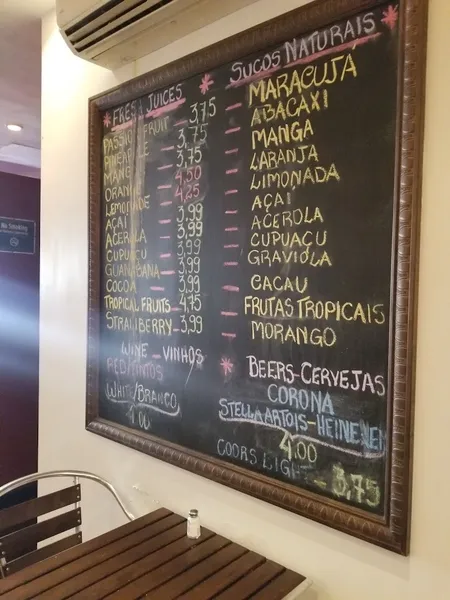 FRESH JUICES
SUCOS NATURAIS
PASSION FRUIT - 3,75
MARACUJÁ
PINEAPPLE - 3.75
ABACAXI
MANGO - 3,75
MANGA
ORANGE - 4.50
LARANJA
LEMONADE - 4.25
LIMONADA
AÇAI - 3,99
AÇAI
ACEROLA - 3,99
ACEROLA
CUPUAÇU - 3,99
CUPUAÇU
GUANABANA - 3,99
GRAVIOLA
COCOA - 3,99
CACAU
TROPICAL FRUITS - 4,75
FRUTAS TROPICAIS
STRAWBERRY - 3,99
MORANGO
WINE - VINHOS
RED/TINTOS
WHITE/BRANCO
BEERS-CERVEJAS
CORONA
STELLA ARTOIS-HEINENEN
4.00
COORS LIGHT - 3,75
No Smoking